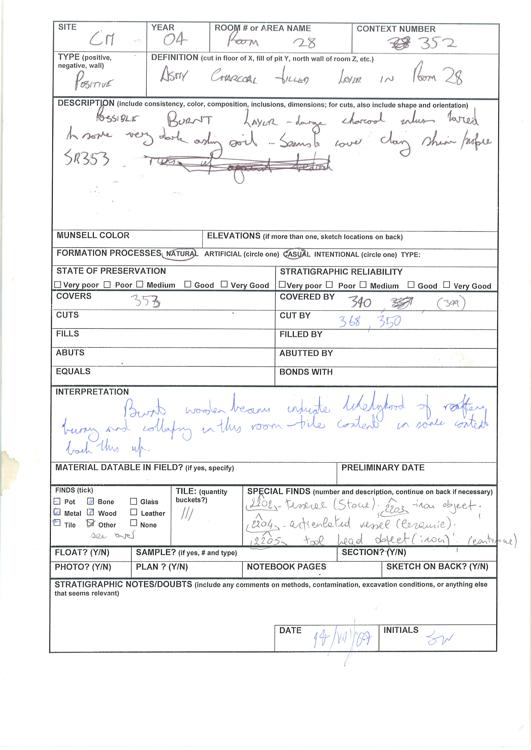 SITE YEAR ROOM # OR AREA NAME CONTEXT NUMBER
CM 04 Room 28 352
TYPE (positive, negative, wall) DEFINITION (cut in floor of X, fill of pit Y, north wall of room Z, etc.)
POSITIVE ASHY CHARCOAL FILLED LAYER IN Room 28
DESCRIPTION (include consistency, color, composition, inclusions, dimensions; for cuts, also include shape and orientation)
POSSIBLE BURNT LAYER - large charcoal
In some very dark ashy soil - over clay
SR353
MUNSELL COLOR ELEVATIONS (if more than one, sketch locations on back)
FORMATION PROCESSES NATURAL ARTIFICIAL (circle one) CASUAL INTENTIONAL (circle one) TYPE:
STATE OF PRESERVATION STRATIGRAPHIC RELIABILITY
Very poor Poor Medium Good Very Good Very poor Poor Medium Good Very Good
COVERS 353 COVERED BY 340
CUTS CUT BY 368, 350
FILLS FILLED BY
ABUTS ABUTTED BY
EQUALS BONDS WITH
INTERPRETATION
Burnt wooden beams indicate likelyhood of rooftery
burning and collapsing in this room - tile content in some context
back this up.
MATERIAL DATABLE IN FIELD? (if yes, specify) PRELIMINARY DATE
FINDS (tick) TILE: (quantity buckets?) SPECIAL FINDS (number and description, continue on back if necessary)
Pot Bone Glass
Metal Wood Leather
Tile Other None
see over
III
2202 - tesserae (Stone). 2203 - iron object.
2204 - articulated vessel (ceramic).
2205 - tool head object (iron).
FLOAT? (Y/N) SAMPLE? (if yes, # and type) SECTION? (Y/N)
PHOTO? (Y/N) PLAN ? (Y/N) NOTEBOOK PAGES SKETCH ON BACK? (Y/N)
STRATIGRAPHIC NOTES/DOUBTS (include any comments on methods, contamination, excavation conditions, or anything else
that seems relevant)
DATE INITIALS